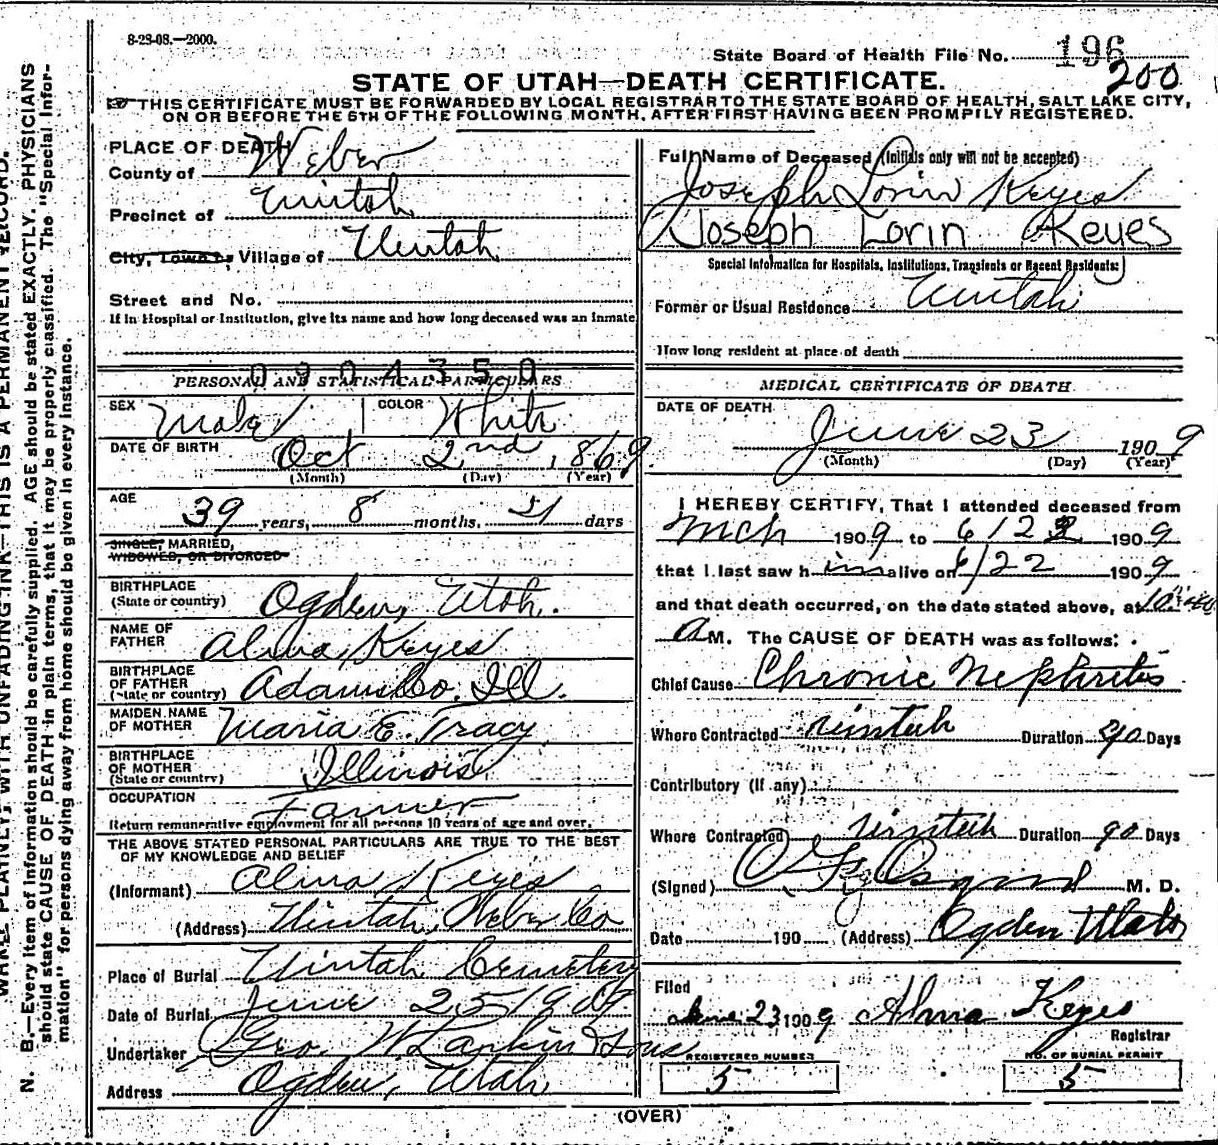 8-28-08.—2000.
State Board of Health File No. 196
200
STATE OF UTAH—DEATH CERTIFICATE.
THIS CERTIFICATE MUST BE FORWARDED BY LOCAL REGISTRAR TO THE STATE BOARD OF HEALTH, SALT LAKE CITY,
ON OR BEFORE THE 5TH OF THE FOLLOWING MONTH, AFTER FIRST HAVING BEEN PROMPTLY REGISTERED.
PLACE OF DEATH
County of Weber
Precinct of Uintah
City, Town or Village of Uintah
Street and No.
If in Hospital or Institution, give its name and how long deceased was an inmate
0904350
PERSONAL AND STATISTICAL PARTICULARS
SEX Male COLOR White
DATE OF BIRTH Oct 2nd, 1869
(Month) (Day) (Year)
AGE 39 years, 8 months, 21 days
SINGLE, MARRIED,
WIDOWED, OR DIVORCED
BIRTHPLACE
(State or country) Ogden, Utah.
NAME OF
FATHER Alma Keyes
BIRTHPLACE
OF FATHER
(State or country) Adams Co. Ill.
MAIDEN NAME
OF MOTHER Maria E. Tracy
BIRTHPLACE
OF MOTHER
(State or country) Illinois
OCCUPATION Farmer
Return remunerative employment for all persons 10 years of age and over.
THE ABOVE STATED PERSONAL PARTICULARS ARE TRUE TO THE BEST
OF MY KNOWLEDGE AND BELIEF
(Informant) Alma Keyes
(Address) Uintah, Weber Co
Place of Burial Uintah Cemetery
Date of Burial June 25 1909
Undertaker Geo. W. Larkin & Sons
Address Ogden, Utah
Full Name of Deceased (Initials only will not be accepted)
Joseph Lorin Keyes
Joseph Lorin Keyes
Special Information for Hospitals, Institutions, Transients or Recent Residents:
Former or Usual Residence Uintah
How long resident at place of death
MEDICAL CERTIFICATE OF DEATH
DATE OF DEATH
June 23 1909
(Month) (Day) (Year)
I HEREBY CERTIFY, That I attended deceased from
Mch 1909 to 6/22 1909
that I last saw him alive on 6/22 1909
and that death occurred, on the date stated above, at 10
A M. The CAUSE OF DEATH was as follows:
Chief Cause Chronic Nephritis
Where Contracted Uintah Duration 90 Days
Contributory (If any)
Where Contracted Uintah Duration 90 Days
(Signed) Osgood M. D.
Date 190 (Address) Ogden Utah
Filed
June 23 1909 Alma Keyes
Registrar
REGISTERED NUMBER
5
NO. OF BURIAL PERMIT
5
(OVER)
WRITE PLAINLY, WITH UNFADING INK—THIS IS A PERMANENT RECORD.
N. B.—Every item of information should be carefully supplied. AGE should be stated EXACTLY. PHYSICIANS
should state CAUSE OF DEATH in plain terms, that it may be properly classified. The "Special Infor-
mation" for persons dying away from home should be given in every instance.